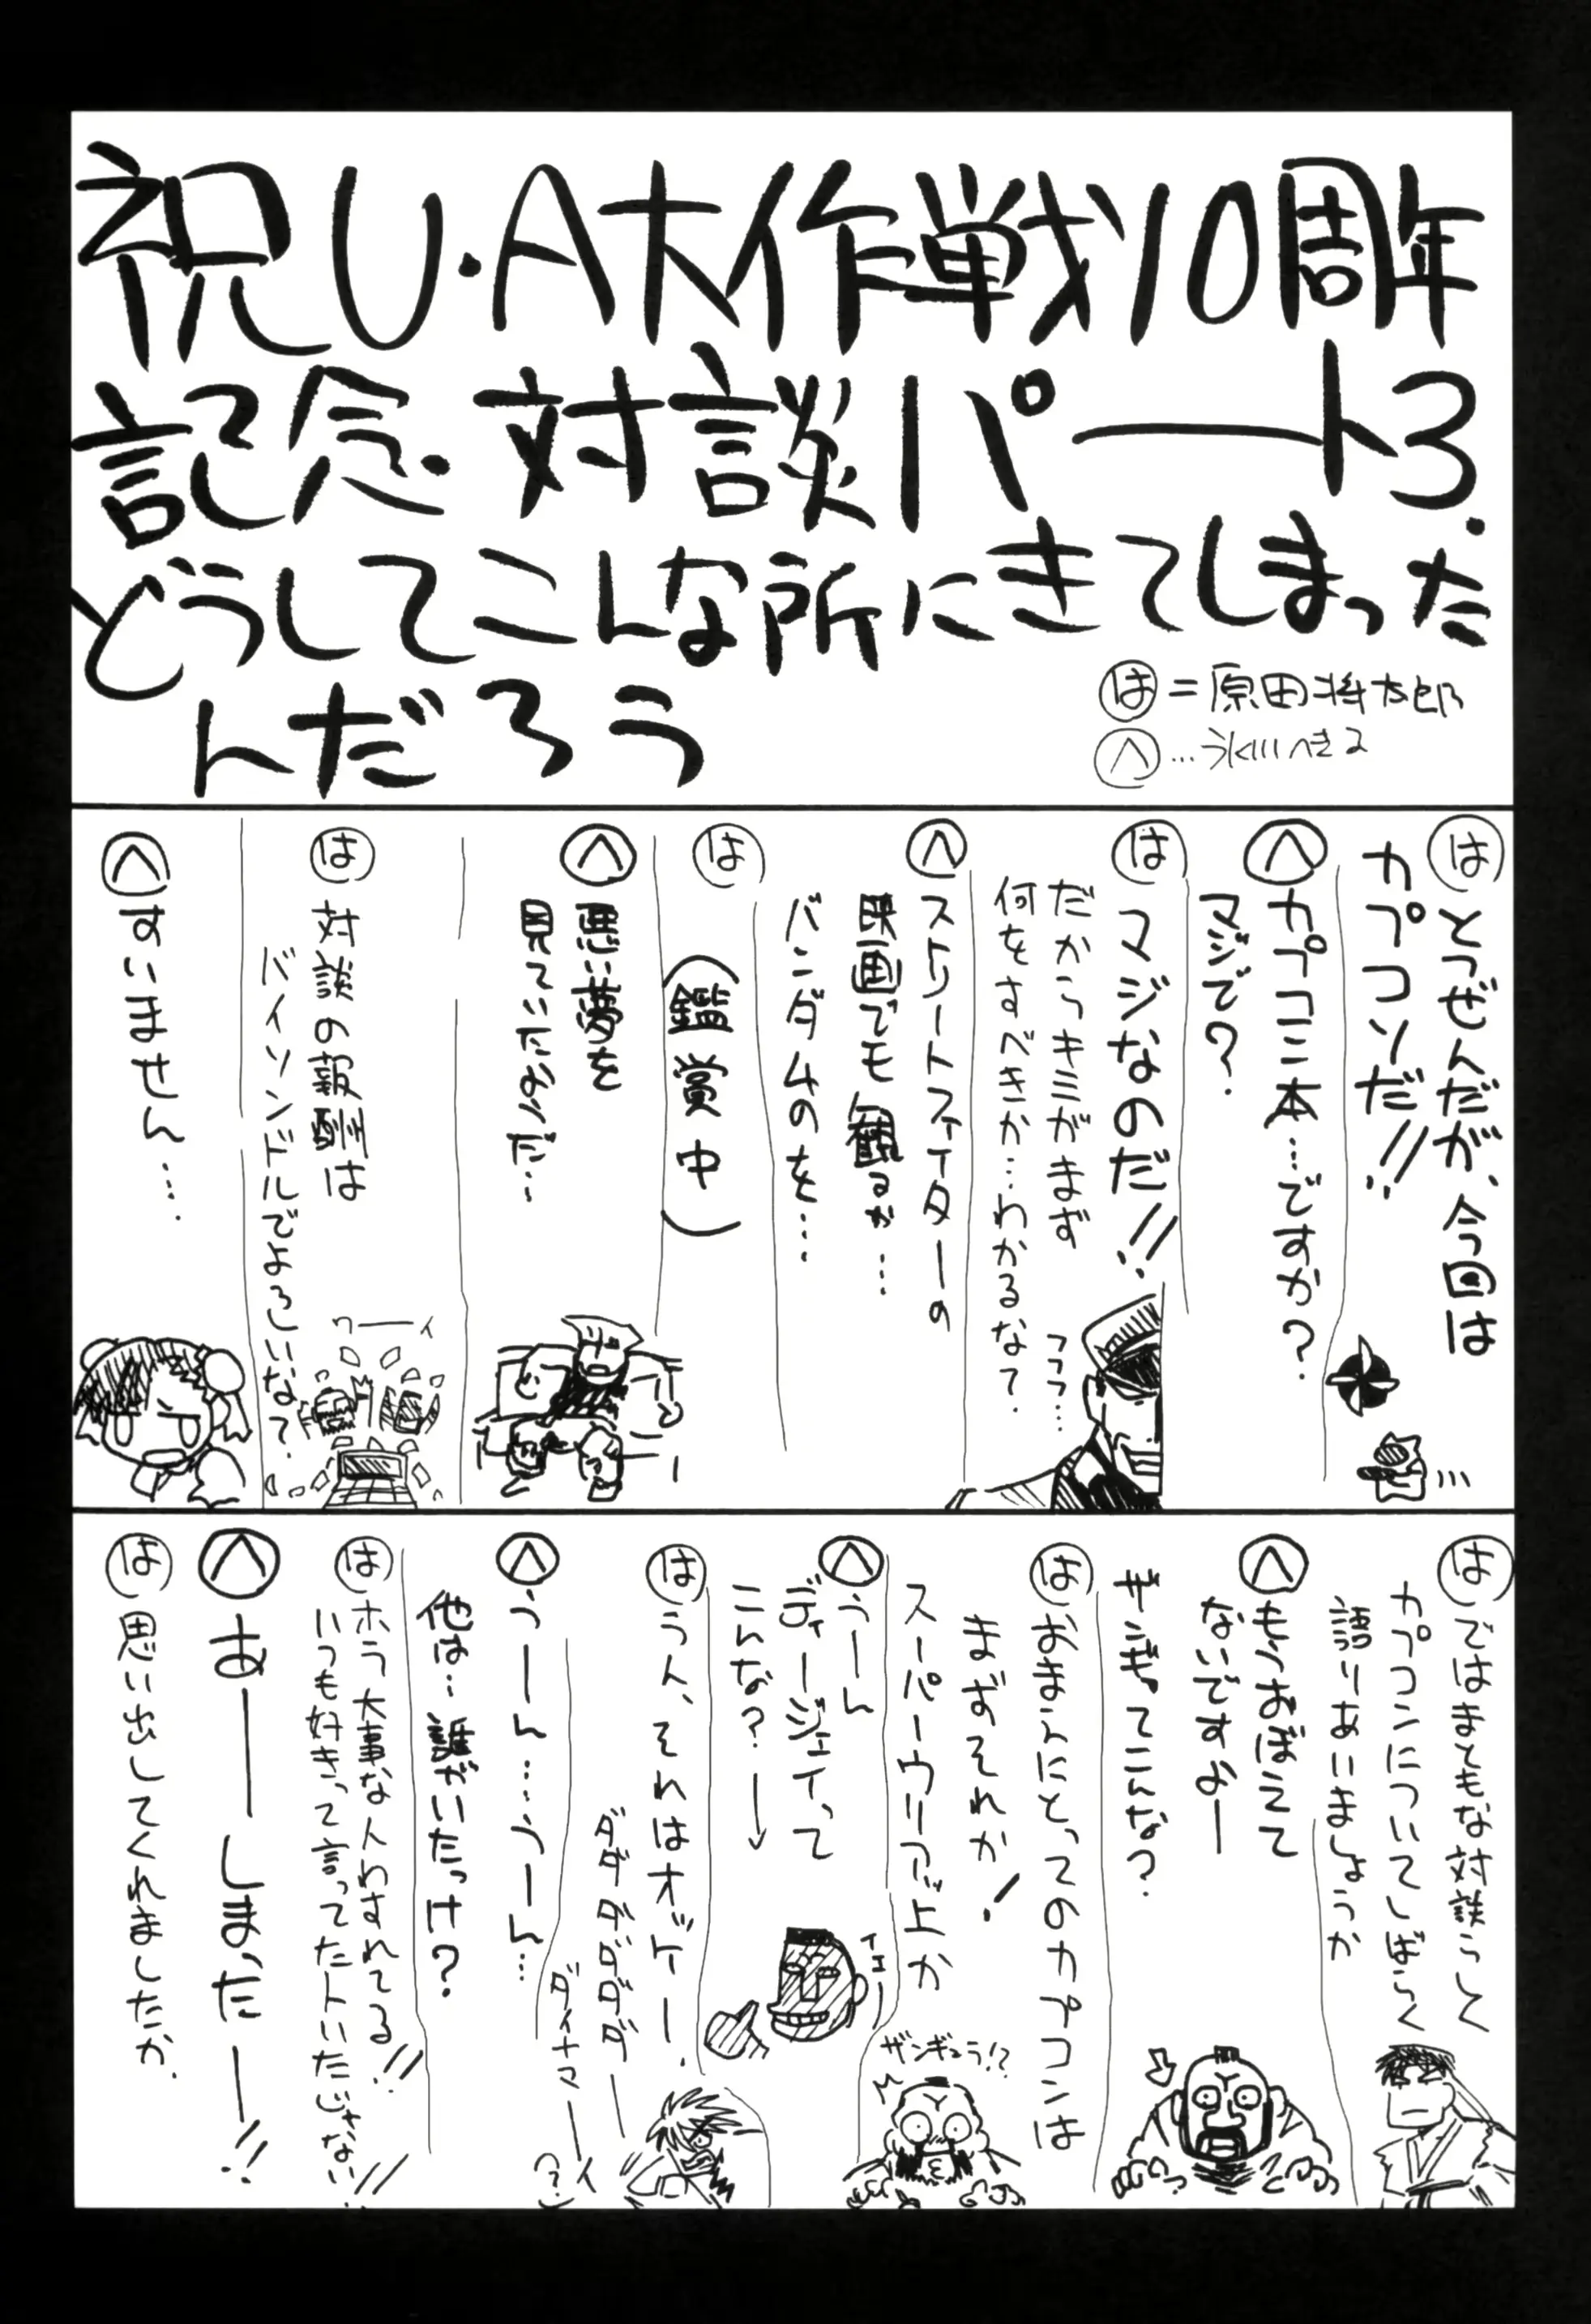 祝U・A大作戦10周年
記念・対談パート3.
どうしてこんな所にきてしまった
んだろう
は=原田将太郎
へ…うㄑ川へきる
は とつぜんだが、今回は
カプコンだ!!
へ カプコン本…ですか?
マジで?
は マジなのだ!!
だからキミがまず
何をすべきか…わかるな?
フフフ…
へ ストリートファイターの
映画でも観るか…
バンダムのを…
は (鑑賞中)
へ 悪い夢を
見ていたようだ…
は 対談の報酬は
バイソンドルでよろしいな?
ワーーイ
へ すいません…
は ではまともな対談らしく
カプコンについてしばらく
語りあいましょうか
へ もうおぼえて
ないですよー
ザンギってこんな?
は おまえにとってのカプコンは
まずそれか!
スーパーウリアッ上か
ザンギュラ!?
へ うーん
ディージェイって
こんな?→
イエー
は うん、それはオッケー!
ダダダダダダー
ダイナマーイ
(?)
へ うーーん…うーん…
他は…誰がいたっけ?
は ホラ大事な人わすれてる!!
いつも好きって言ってた人いたじゃない!!
へ あーーしまったーー!!
は 思い出してくれましたか、